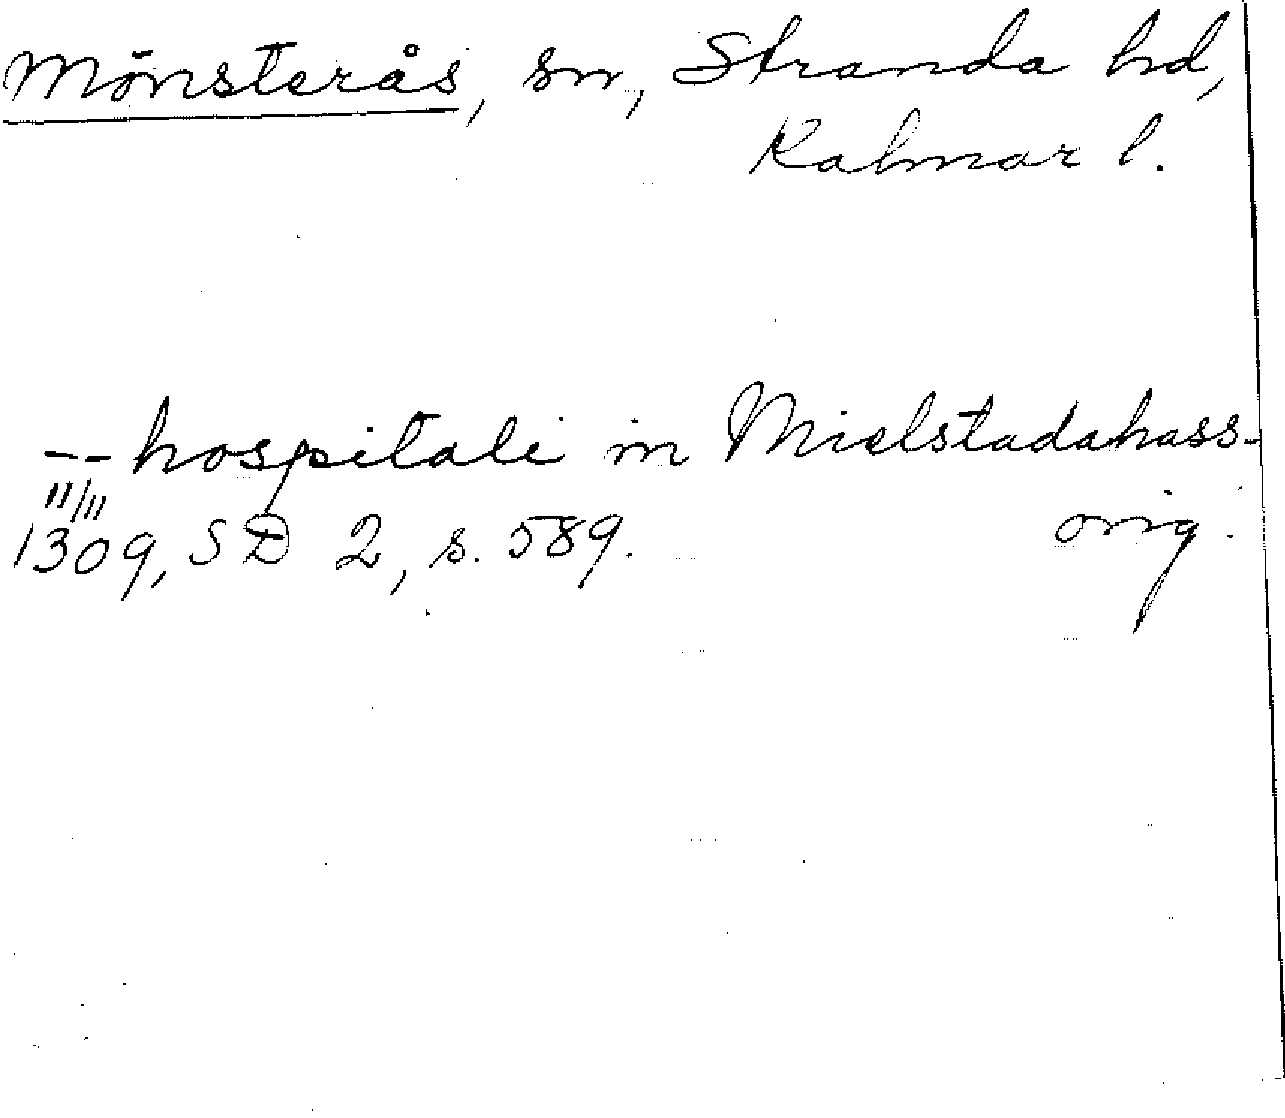 Mönsterås, sn, Stranda hd,
Kalmar l.
-- hospitali in Mielstadahass-
11/11
1309, SD 2, s. 589. orig.